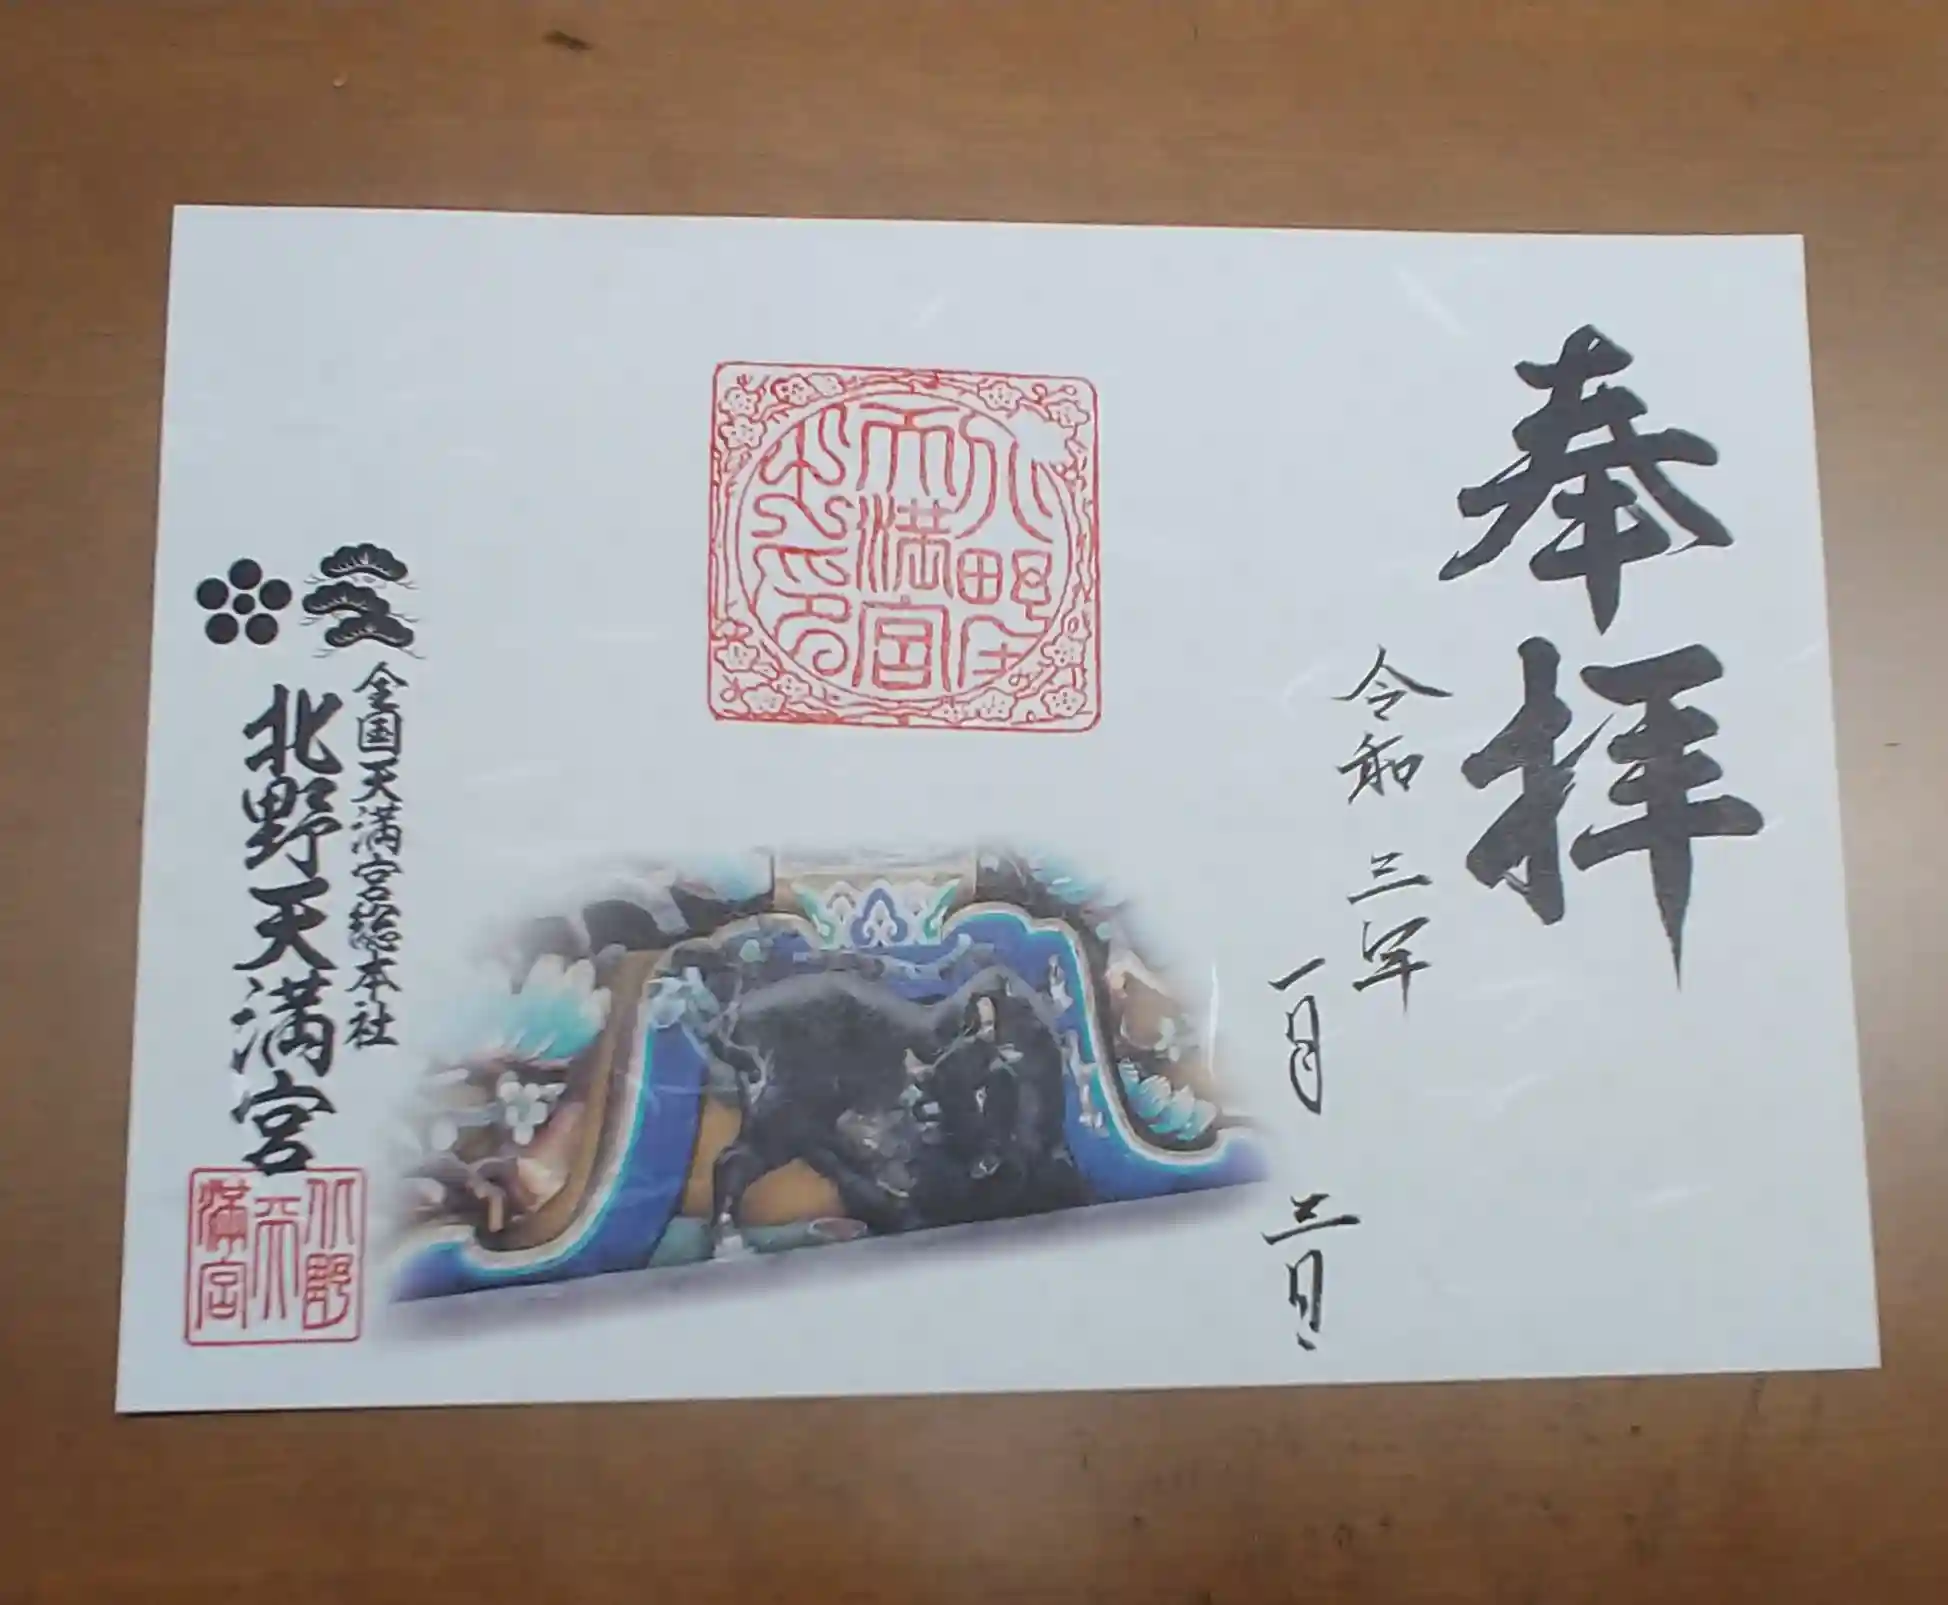 奉拝
令和三年
一月三日
北野
天満宮
全国天満宮総本社
北野天満宮
北野
天
満宮